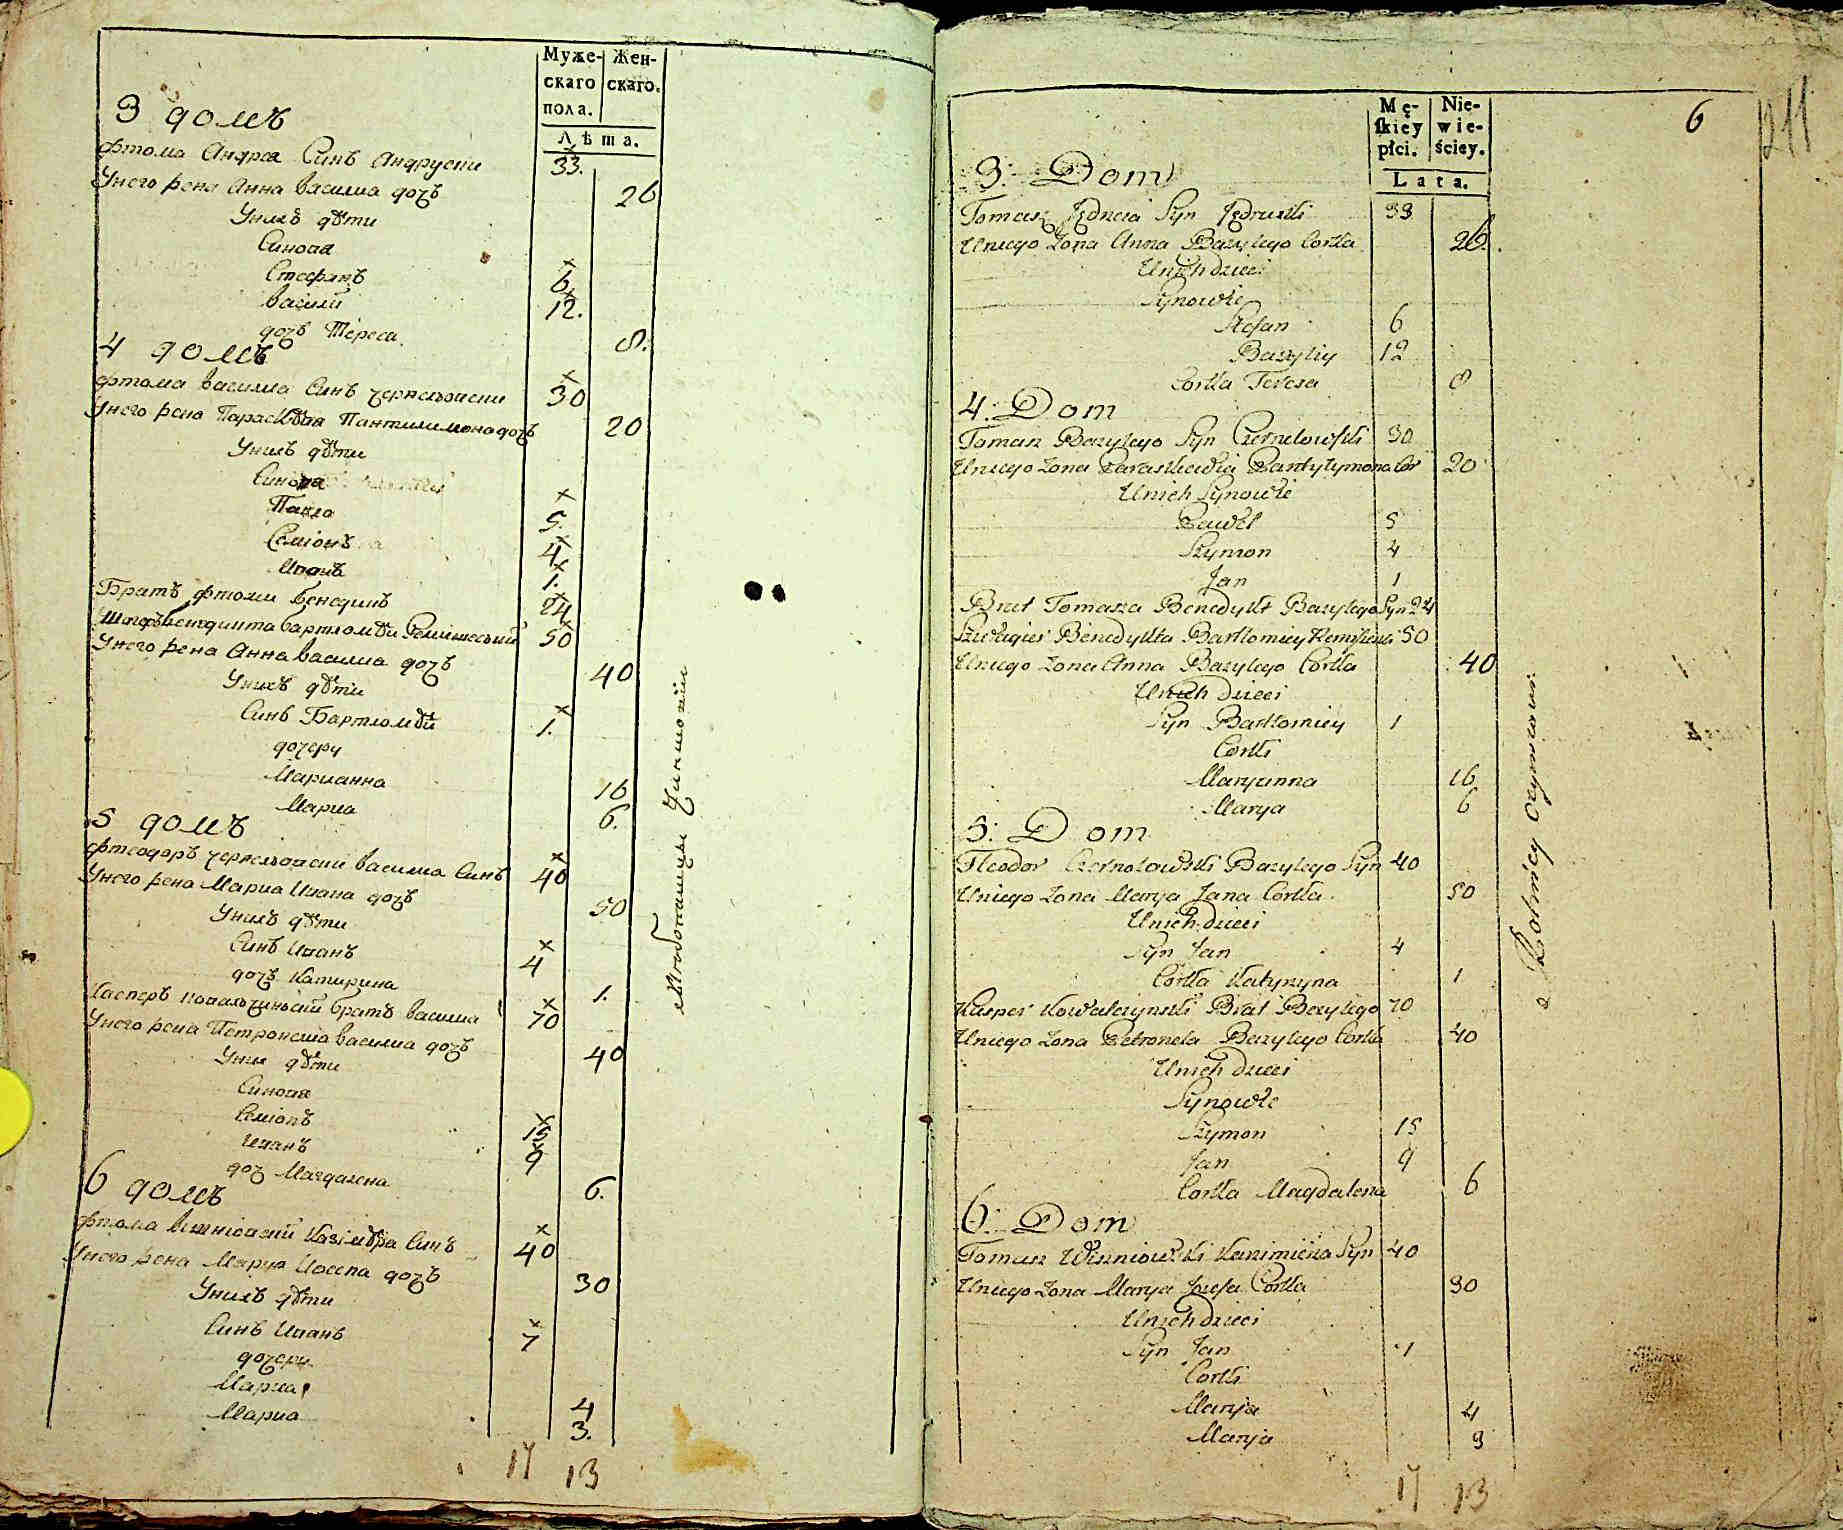 Муже-
скаго
пола.
Жен-
скаго.
Лѣта.
3 домъ
Фтома Андреа Синъ Андруски 33.
Унего жена Анна василиа дочъ 26
Унихъ дѣти
Синова
Стефанъ 6
васили 12.
дочъ Тереса 8.
4 домъ
Фтома василиа Синъ чернеловски 30
Унего жена Параскѣвиа Пантилимона дочъ 20
Унихъ дѣти
Синова
Павло 5
Семіонъ 4
Иванъ 1.
Братъ фтоми Бенединъ 24
бартломѣи 50
Унего жена Анна василиа дочъ 40
Унихъ дѣти
Синъ Бартломѣй 1.
дочери
Марианна 16
Мариа 6.
5 домъ
Фтеодоръ чернеловски василиа Синъ 40
Унего жена Мариа Ивана дочъ 50
Унихъ дѣти
Синъ Иванъ 4
дочъ Катирина 1.
Касперъ ковальчинъски братъ василиа 70
Унего жена Петронелиа василиа дочъ 40
Уних дѣти
Синова
Семіонъ 15
Иванъ 9
доч Магдалена 6.
6 домъ
Фтома вишніовскій Казімѣра Синъ 40
Унего жена Мариа Иосепа дочъ 30
Унихъ дѣти
Синъ Иванъ 7
дочери
Мариа 4
Мариа 3.
17 13
чиншовіи
Mę-
skiey
płci.
Nie-
wie-
ściey.
Lata.
6
1211
3: Dom
Tomasz Jędrzeia Syn Jędruski 33
Uniego Zona Anna Bazylego Corka 26.
Unich dzieci
Synowie
Stefan 6
Bazyliy 12
Corka Teresa 8
4: Dom
Tomasz Bazylego Syn Czernelowski 30
Uniego Zona Paraskewia Pantylymona Cor 20
Unich Synowie
Paweł 5
Szymon 4
Jan 1
Brat Tomasza Benedykt Bazylego Syn 24
Szwagier Benedykta Bartłomiey 50
Uniego Zona Anna Bazylego Corka 40
Unich dzieci
Syn Bartłomiey 1
Corki
Maryanna 16
Marya 6
5: Dom
Fteodor Czernolowski Bazylego Syn 40
Uniego Zona Marya Jana Corka 50
Unich dzieci
Syn Jan 4
Corka Katyrzyna 1
Kasper Kowalczynski Brat Bazylego 70
Uniego Zona Petronela Bazylego Corka 40
Unich dzieci
Synowie
Szymon 15
Jan 9
Corka Magdalena 6
6: Dom
Tomasz Wiszniowski Kazimierza Syn 40
Uniego Zona Marya Jozefa Corka 30
Unich dzieci
Syn Jan 7
Corki
Marya 4
Marya 3
17 13
Rolnicy czynszowi